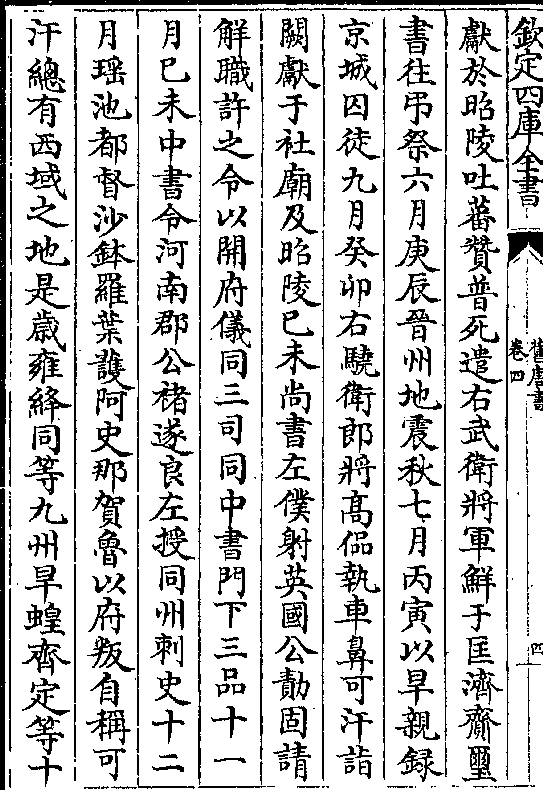 欽定四庫全書
舊唐書
卷四
四
獻於昭陵吐蕃贊普死遣右武衛將軍鮮于匡濟齎璽
書往弔祭六月庚辰晉州地震秋七月丙寅以旱親録
京城囚徒九月癸卯右驍衛郎將髙偘執車鼻可汗詣
闕獻于社廟及昭陵已未尚書左僕射英國公勣固請
解職許之令以開府儀同三司同中書門下三品十一
月已未中書令河南郡公褚遂良左授同州刺史十二
月瑶池都督沙鉢羅葉護阿史那賀魯以府叛自稱可
汗總有西域之地是歳雍絳同等九州旱蝗齊定等十